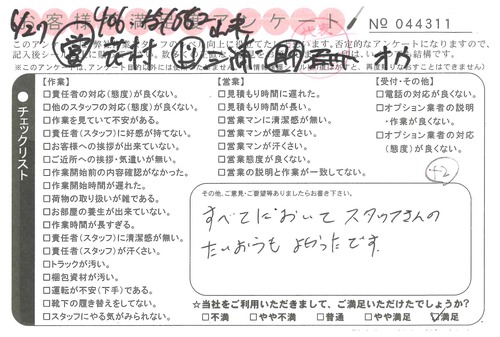 お客様満足アンケート!
№ 044311
4/27
406
このアンケートは
向上に
否定的なアンケートになりますので、
記入後
結構です。
(※このアンケートは、アンケート目的以外には使用
チェックリスト
【作業】
□責任者の対応(態度)が良くない。
□他のスタッフの対応(態度)が良くない。
□作業を見ていて不安がある。
□責任者(スタッフ)に好感が持てない。
□お客様への挨拶が出来ていない。
□ご近所への挨拶・気遣いが無い。
□作業開始前の内容確認がなかった。
□作業開始時間が遅れた。
□荷物の取り扱いが雑である。
□お部屋の養生が出来ていない。
□作業時間が長すぎる。
□責任者(スタッフ)に清潔感が無い。
□責任者(スタッフ)が汗くさい。
□トラックが汚い。
□梱包資材が汚い。
□運転が不安(下手)である。
□靴下の履き替えをしてない。
□スタッフにやる気がみられない。
【営業】
□見積もり時間に遅れた。
□見積もり時間が長い。
□営業マンに清潔感が無い。
□営業マンが煙草くさい。
□営業マンが汗くさい。
□営業態度が良くない。
□営業の説明と作業が一致してない。
【受付・その他】
□電話の対応が良くない。
□オプション業者の説明
・作業が良くない。
□オプション業者の対応
(態度)が良くない。
+2
その他、ご意見・ご要望等ありましたらお書き下さい。
すべてにおいてスタッフさんの
たいおうもよかったです。
☆当社をご利用いただきまして、ご満足いただけたでしょうか?
□不満 □やや不満 □普通 □やや満足 ☑満足